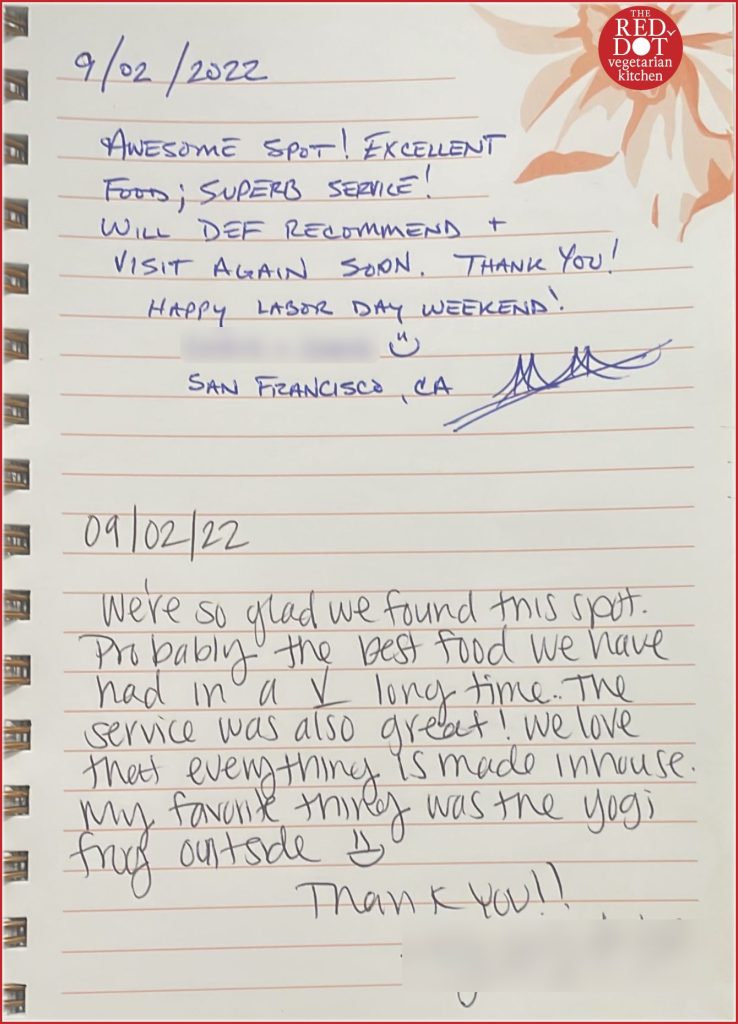 THE
RED
DOT
vegetarian
kitchen
9/02/2022
AWESOME SPOT! EXCELLENT
FOOD; SUPERB SERVICE!
WILL DEF RECOMMEND +
VISIT AGAIN SOON. THANK YOU!
HAPPY LABOR DAY WEEKEND!
SAN FRANCISCO, CA
09/02/22
We're so glad we found this spot.
Probably the best food we have
had in a V long time.. The
service was also great! We love
that everything is made inhouse.
My favorite thing was the yogi
frog outside
Thank YOU!!